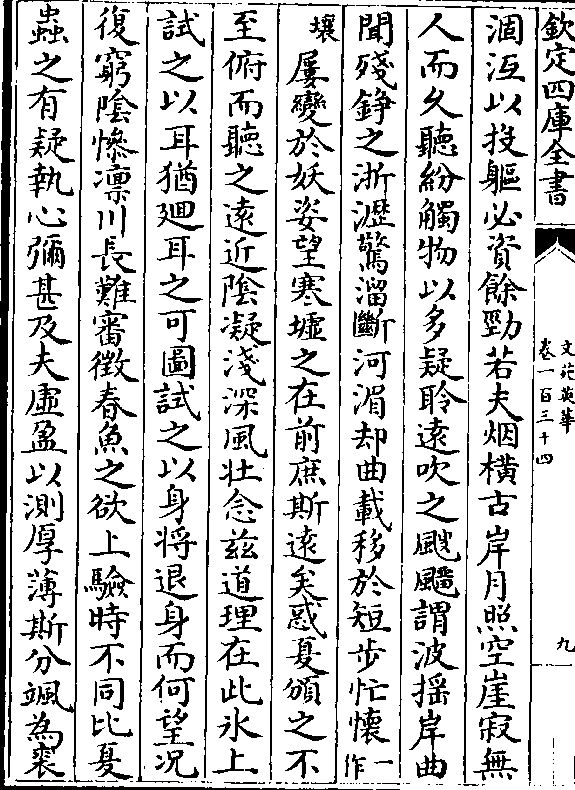 欽定四庫全書
文苑英華
卷一百三十四
九
涸沍以投軀必資餘勁若夫烟橫古岸月照空崖寂無
人而久聽紛觸物以多疑聆遠吹之颼飀謂波揺岸曲
聞殘錚之淅瀝驚溜斷河湄却曲載移於短步忙懷一作
壤屢變於妖姿望寒墟之在前庶斯遠矣惑夏頒之不
至俯而聽之遠近陰凝淺深風壮念兹道理在此氷上
試之以耳猶廻耳之可圖試之以身将退身而何望况
復窮陰慘凛川長難審徴春魚之欲上驗時不同比夏
蟲之有疑執心彌甚及夫虛盈以測厚薄斯分颯為裘